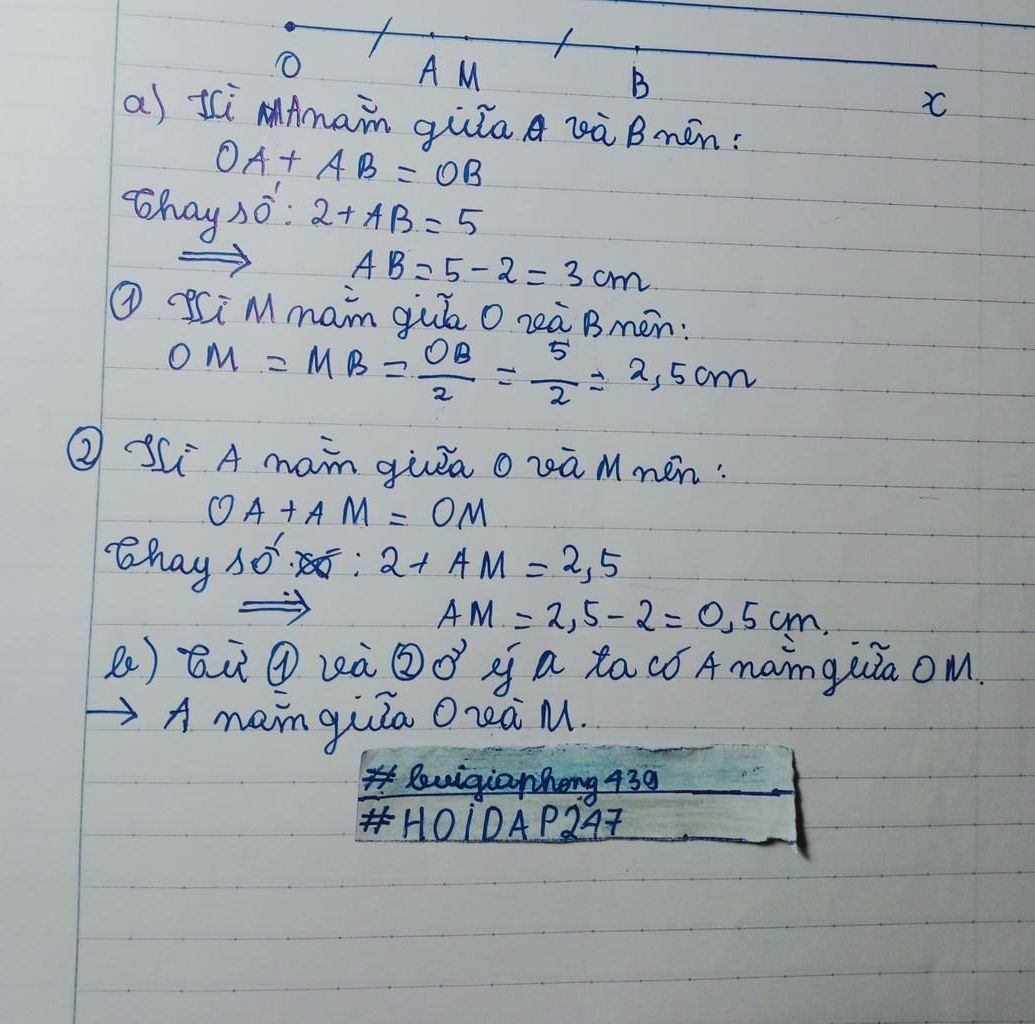 O A M B x
a) Vì A nằm giữa A và B nên:
OA + AB = OB
Thay số: 2 + AB = 5
⇒ AB = 5 - 2 = 3 cm
① Vì M nằm giữa O và B nên:
OM = MB = OB/2 = 5/2 = 2,5 cm
② Vì A nằm giữa O và M nên:
OA + AM = OM
Thay số: 2 + AM = 2,5
⇒ AM = 2,5 - 2 = 0,5 cm.
b) Từ ① và ② ở ý a ta có A nằm giữa OM.
→ A nằm giữa O và M.
# buigiaphong439
# HOIDAP247